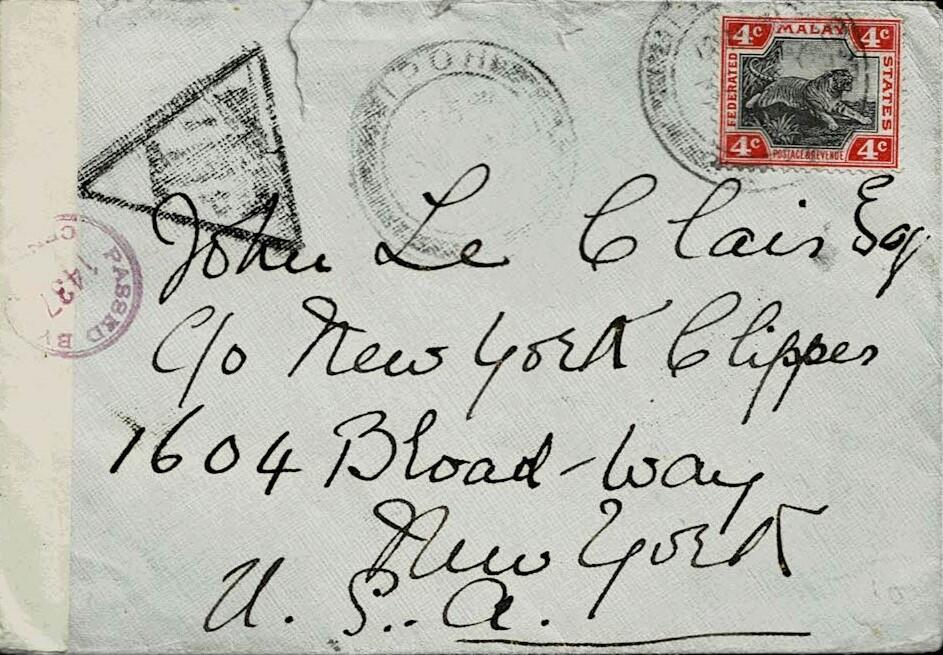 4c MALAY 4c
FEDERATED
STATES
4c POSTAGE & REVENUE 4c
IPOH
PASSED B
1437
John Le Clair Esq
C/o New York Clipper
1604 Broad-Way
New York
U. S. A.